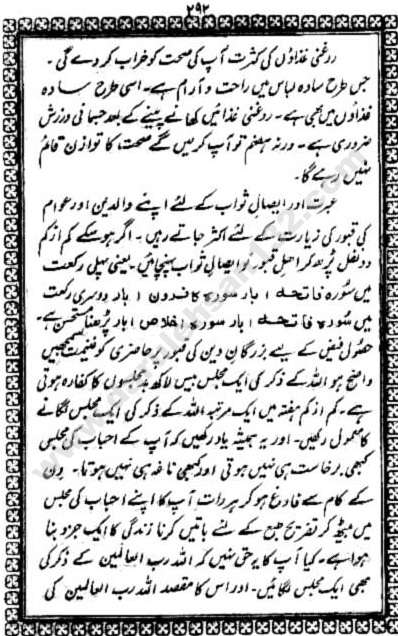 ۲۹۲
روغنی غذاؤں کی کثرت آپ کی صحت کو خراب کر دے گی ۔
جس طرح سادہ لباس میں راحت و آرام ہے۔ اسی طرح سادہ
غذاؤں میں بھی ہے۔ روغنی غذائیں کھانے پینے کے بعد جسمانی ورزش
ضروری ہے۔ ورنہ ہضم تو آپ کر لیں گے صحت کا توازن قائم
نہیں رہے گا۔
عبرت اور ایصالِ ثواب کے لئے اپنے والدین اور عوام
کی قبور کی زیارت کے لئے اکثر جاتے رہیں۔ اگر ہوسکے کم از کم
دو نفل پڑھ کر اھل قبور کو ایصالِ ثواب پہنچائیں۔ یعنی پہلی رکعت
میں سُورہ فاتحہ ۱ بار سورۃ کافرون ۱ بار دوسری رکعت
میں سُورۃ فاتحہ ۱ بار سورۃ اخلاص ۱ بار پڑھنا مستحسن ہے۔
حصُولِ فیض کے لیے بزرگانِ دین کی قبور پر حاضری کو غنیمت سمجھیں
واضح ہو اللہ کے ذکر کی ایک مجلس بیس لاکھ بد مجلسوں کا کفارہ ہوتی
ہے۔ کم از کم ہفتہ میں ایک مرتبہ اللہ کے ذکر کی ایک مجلس لگانے
کا معمول رکھیں۔ اور یہ ہمیشہ یاد رکھیں کہ آپ کے احباب کی مجلس
کبھی برخاست ہی نہیں ہوتی اور کبھی ناغہ ہی نہیں ہوتا۔ دِن
کے کام سے فارغ ہو کر ہر رات آپ کا اپنے احباب کی مجلس
میں بیٹھ کر تفریح طبع کے لئے باتیں کرنا زندگی کا ایک جزو بنا
ہوا ہے۔ کیا آپ کا یہ حق نہیں کہ اللہ رب العالمین کے ذکر کی
بھی ایک مجلس لگائیں۔ اور اس کا مقصد اللہ رب العالمین کی